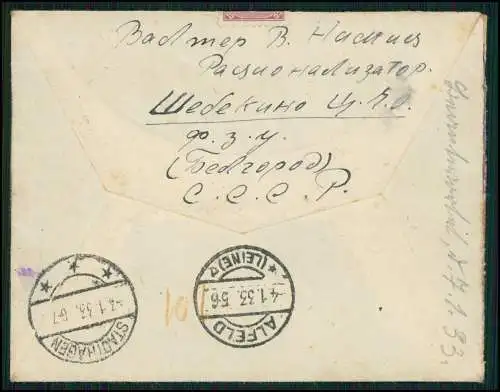 Валтер В.
Рационализатор.
Шебекино Ц.Ч.О.
ф.з.у.
(Белгород)
С.С.С.Р.
STADTHAGEN
-4.1.33. 6-7
ALFELD
(LEINE)
4.1.33. 5-6
101